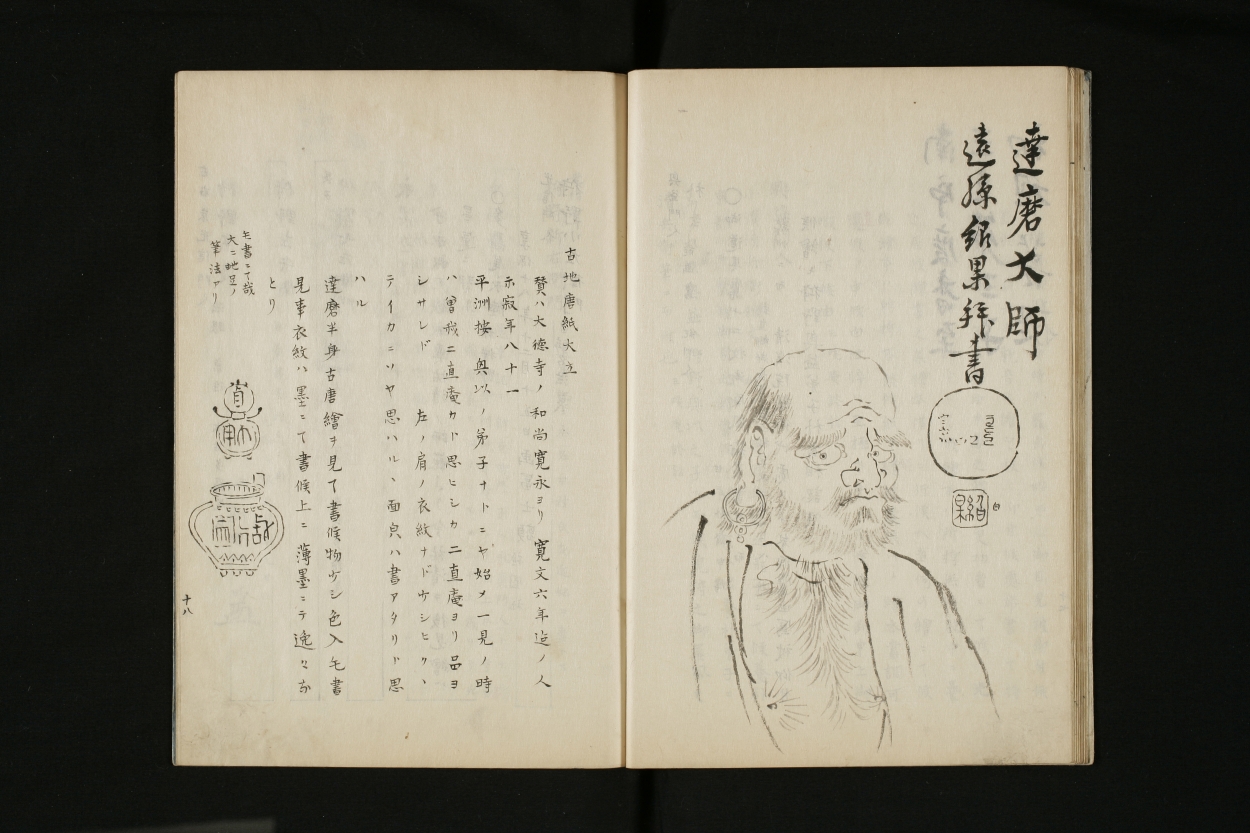 達磨大師
遠孫紹果拜書
紹果
白
古地唐紙大立
賛ハ大徳寺ノ和尚寛永ヨリ寛文六年迄ノ人
示寂年八十一
平洲按與以ノ弟子ナドニヤ始メ一見ノ時
ハ曽我二直庵カト思ヒシカ二直庵ヨリ品ヨ
シサレド左ノ肩ノ衣紋ナド少シヒクヽ
テイカニソヤ思ハルヽ面貌ハ書アタリト思
ハル
達磨半身古唐繪ヲ見て書候物少シ色入毛書
見事衣紋ハ墨ニて書候上ニ薄墨ニテ逸々
とり
毛書ニて哉
大ニ地足ノ
筆法アリ
直庵
十八